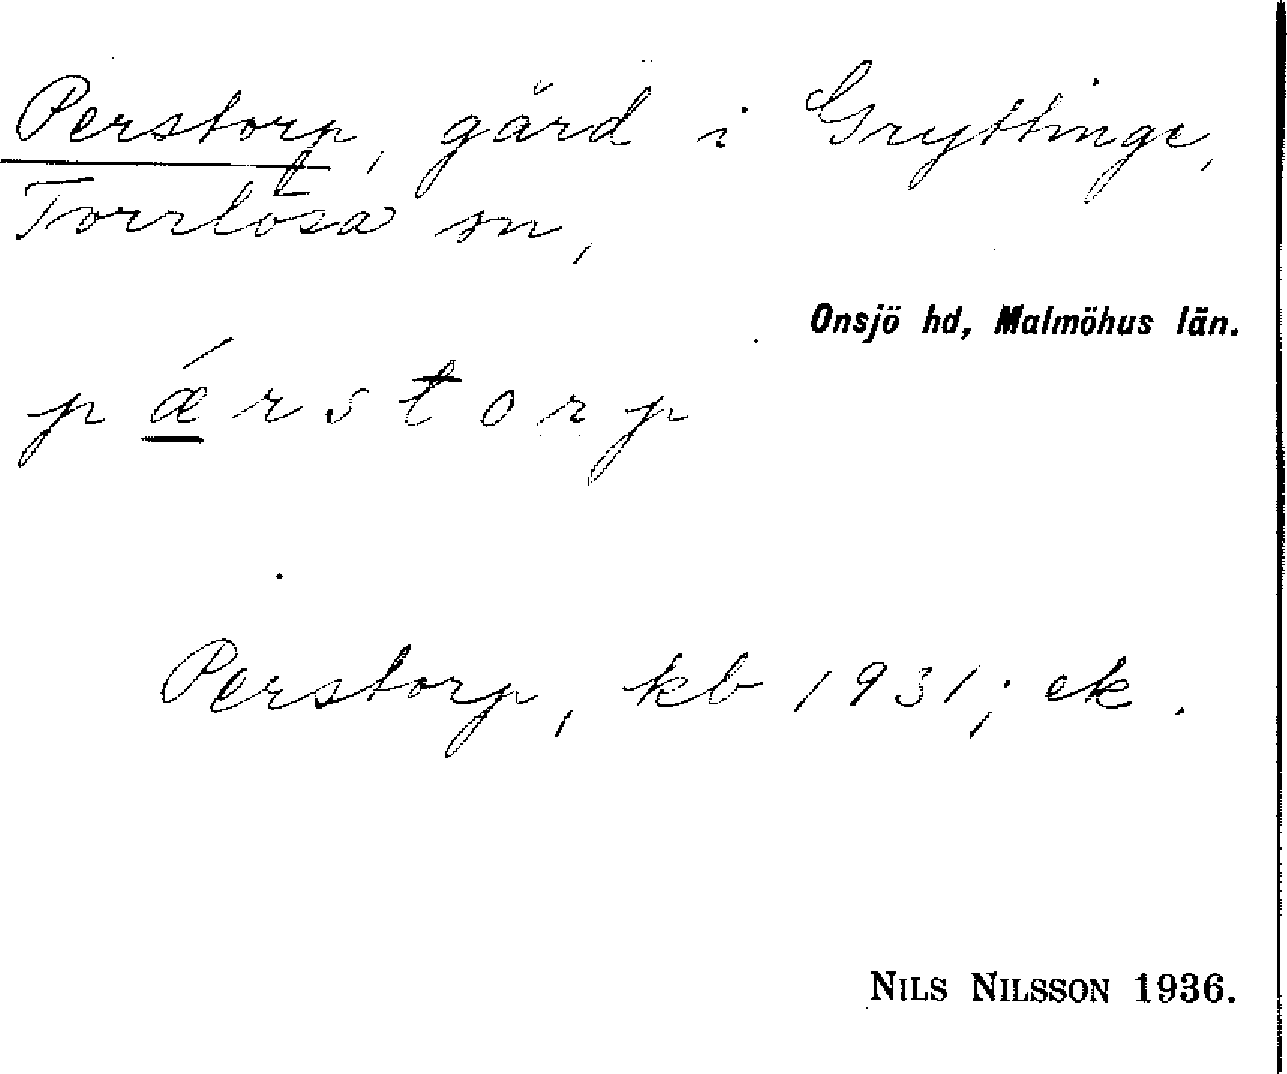 Perstorp, gård i Gryttinge,
Torrlösa sn,
Onsjö hd, Malmöhus län.
p ǽ r s t o r p
Perstorp, kb 1931; ek.
NILS NILSSON 1936.